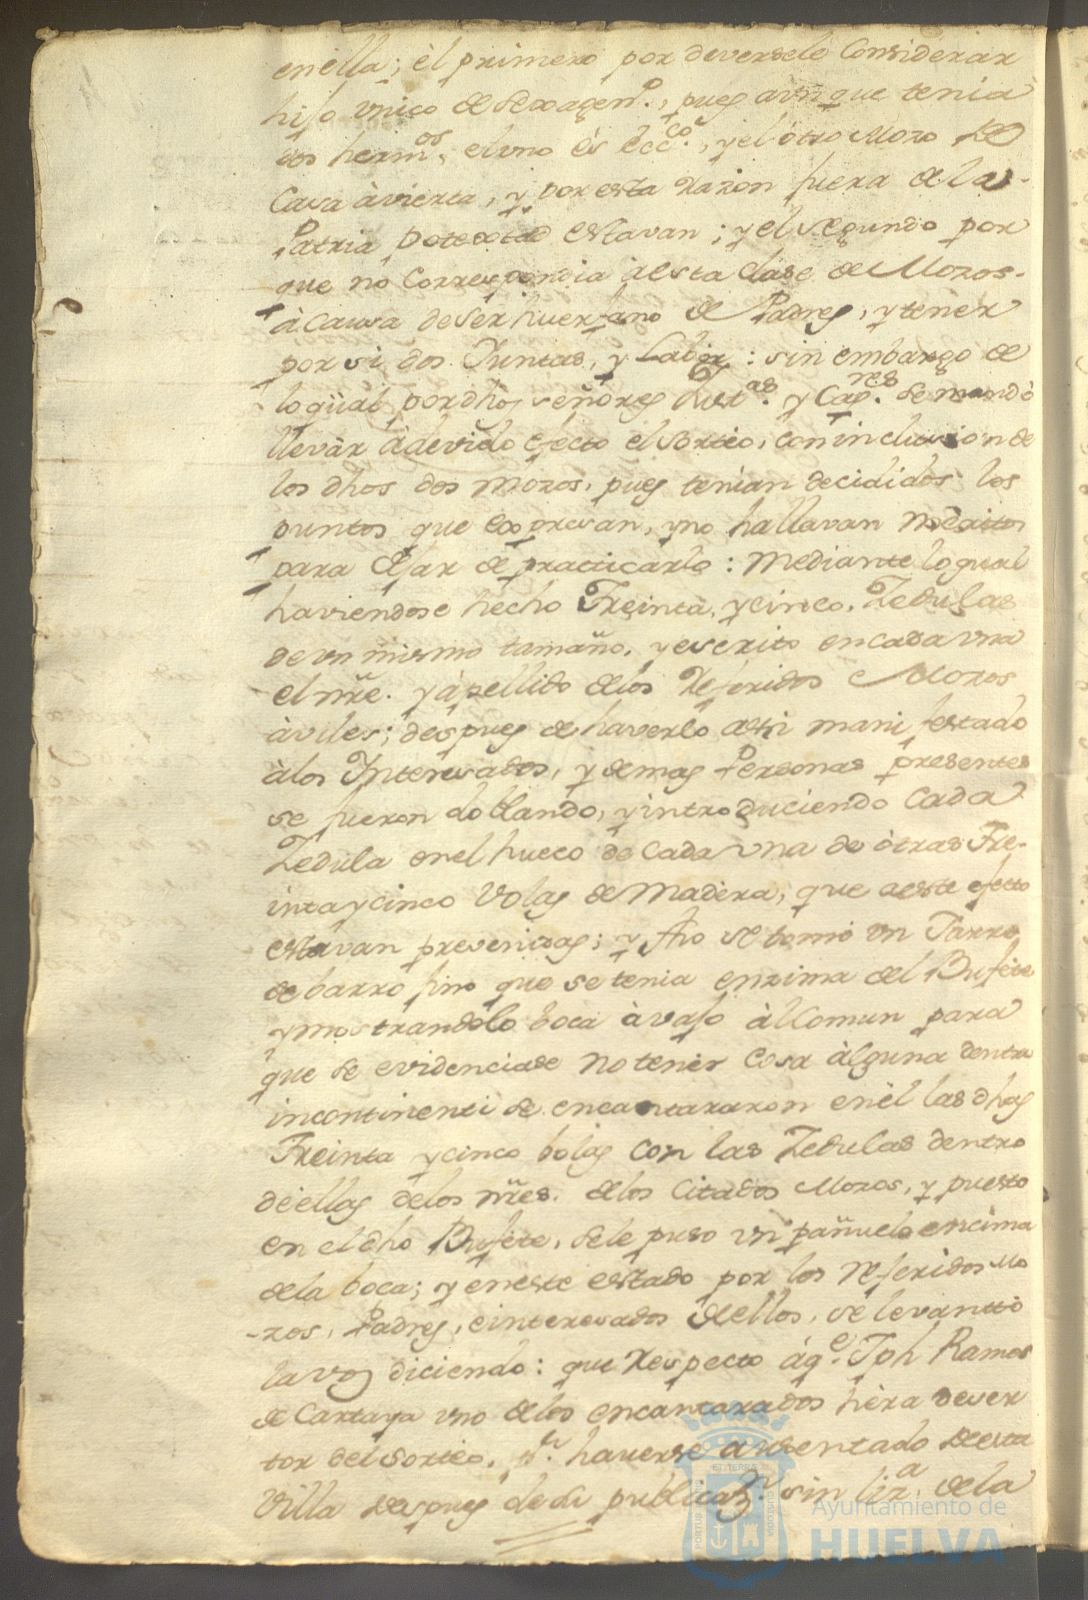 en ella; èl primero por deversele Considerar
hijo vnico de Sexagen.º, pues aunque tenia
dos herm.os, el vno ès Ècc.co, y el òtro Mozo de
Casa àvierta, y por esta razon fuera de la
Patria potestad estavan; y el segundo por
que no Correspondia à esta clase de Mozos
à causa de ser huerfano de Padres, y tener
por si dos Yuntas, y Labor: sin embargo de
lo qüal por dhos señores y Cap.res se mandò
llevar à devido efecto el sorteo, con inclusion de
los dhos dos mozos, pues tenian decididos los
puntos que expresan, y no hallavan mèritos
para dejar de practicarlo: Mediante lo qual
haviendose hecho Treinta, y cinco, Zedulas
de vn mismo tamaño, y escrito en cada vna
el nre. y àpellido de los Referidos Mozos
àviles; despues de haverlo assi manifestado
à los Interesados, y demas Personas presentes
se fueron doblando, y introduciendo Cada
Zedula en el hueco de Cada vna de òtras Tre-
inta y cinco Volas de Madera, que a este efecto
estavan prevenidas; y se tomò vn Tarro
de barro fino que se tenia enzima del Bufete
y mostrandolo boca àvajo àl Comun para
que se evidenciase no tener Cosa àlguna dentro
incontinenti se encantararon en èl las dhas
Treinta y cinco bolas con las Zedulas dentro
de ellas de los nres. de los Citados Mozos, y puesto
en el dho Bufete, se le puso vn pañuelo encima
de la boca; y en este estado por los referidos Mo
-zos, Padres, e interesados de ellos, se levantò
la voz diciendo: que Respecto à q.e Jph Ramos
de Cartaya vno de los encantarados hèra deser
tor del Sorteo, p.r haverse ausentado de esta
Villa despues de su publicaz.n sin liz.a de la
Ayuntamiento de
HUELVA